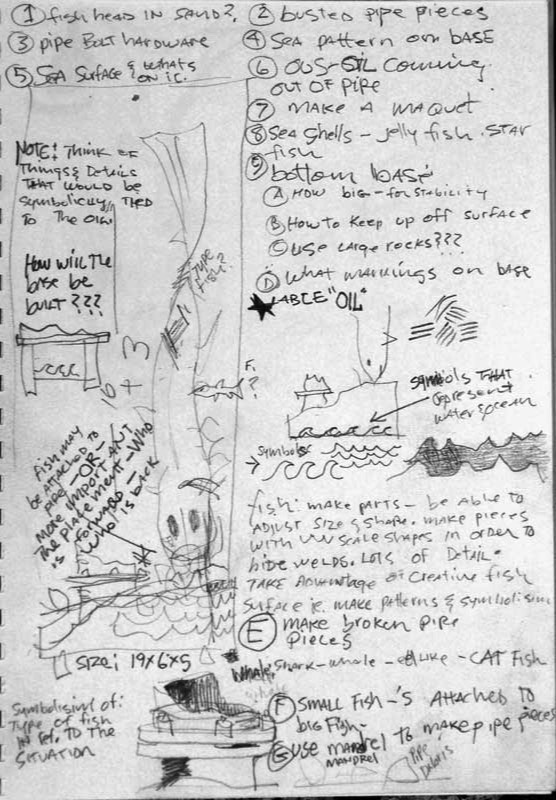 ① fish head IN SAND?
② busted pipe pieces
③ pipe Bolt hardware
④ Sea pattern on BASE
⑤ Sea Surface & whats
on it.
⑥ OUS-OIL Coming
out OF pipe
⑦ MAKE A MAQUET
⑧ Sea Shells - jelly fish. STAR
fish
⑨ bottom base
Ⓐ How big - for stability
Ⓑ How to keep up off surface
Ⓒ use large rocks???
Ⓓ What markings on base
LABLE "OIL"
NOTE: Think OF
Things & Details
THAT would be
symbolicly TIED
TO The OIL
How will the
base be
built???
Type
fish?
F.
?
Symbols THAT
represent
water & ocean
Symbols
Fish may
be attached to
pipe - OR -
more IMPORTANT
The placement - Who
is forward -
Who is back
fish: make parts - be able to
ADJUST Size & Shape. make pieces
with UU scale shapes in order to
hide welds. Lots of Detail.
TAKE Advantage of Creative fish
Surface ie. make patterns & symbolism
Ⓔ make broken pipe
pieces
Size: 19x6x5
Whale, Shark - whale - eel like - CAT Fish
Symbolism of:
Type of fish
IN ref. TO The
SITUATION
Ⓕ SMALL Fish-'s Attached to
big Fish-
Ⓖ use mandrel to make pipe pieces
MANDREL
Pipe
Debris